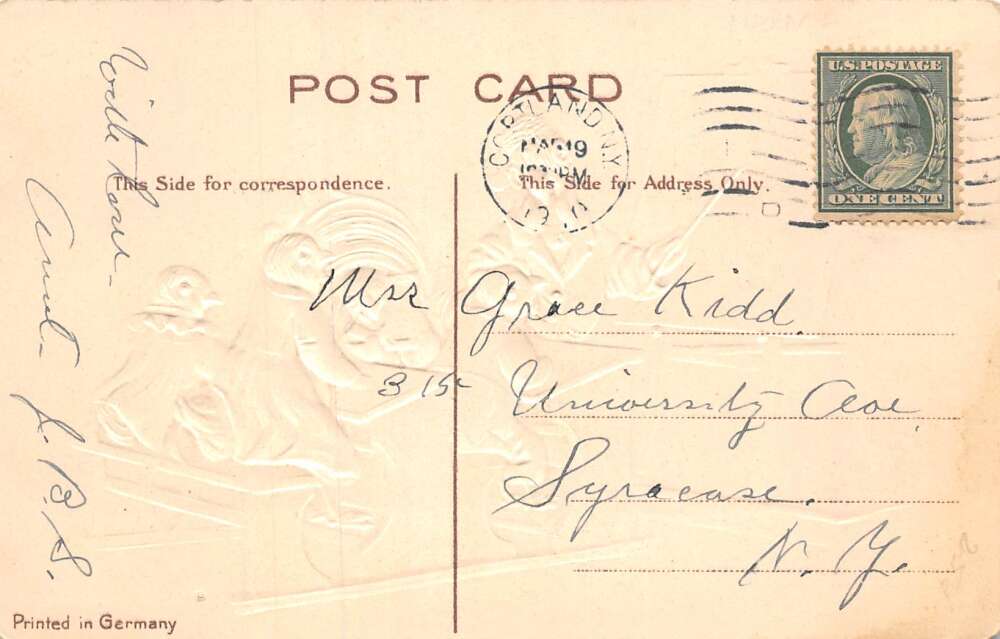 POST CARD
U.S. POSTAGE
ONE CENT
CORTLAND N.Y.
MAR 19
PM
This Side for correspondence.
This Side for Address Only.
With love -
Aunt L. B. S.
Miss Grace Kidd.
315 University Ave
Syracuse.
N. Y.
Printed in Germany